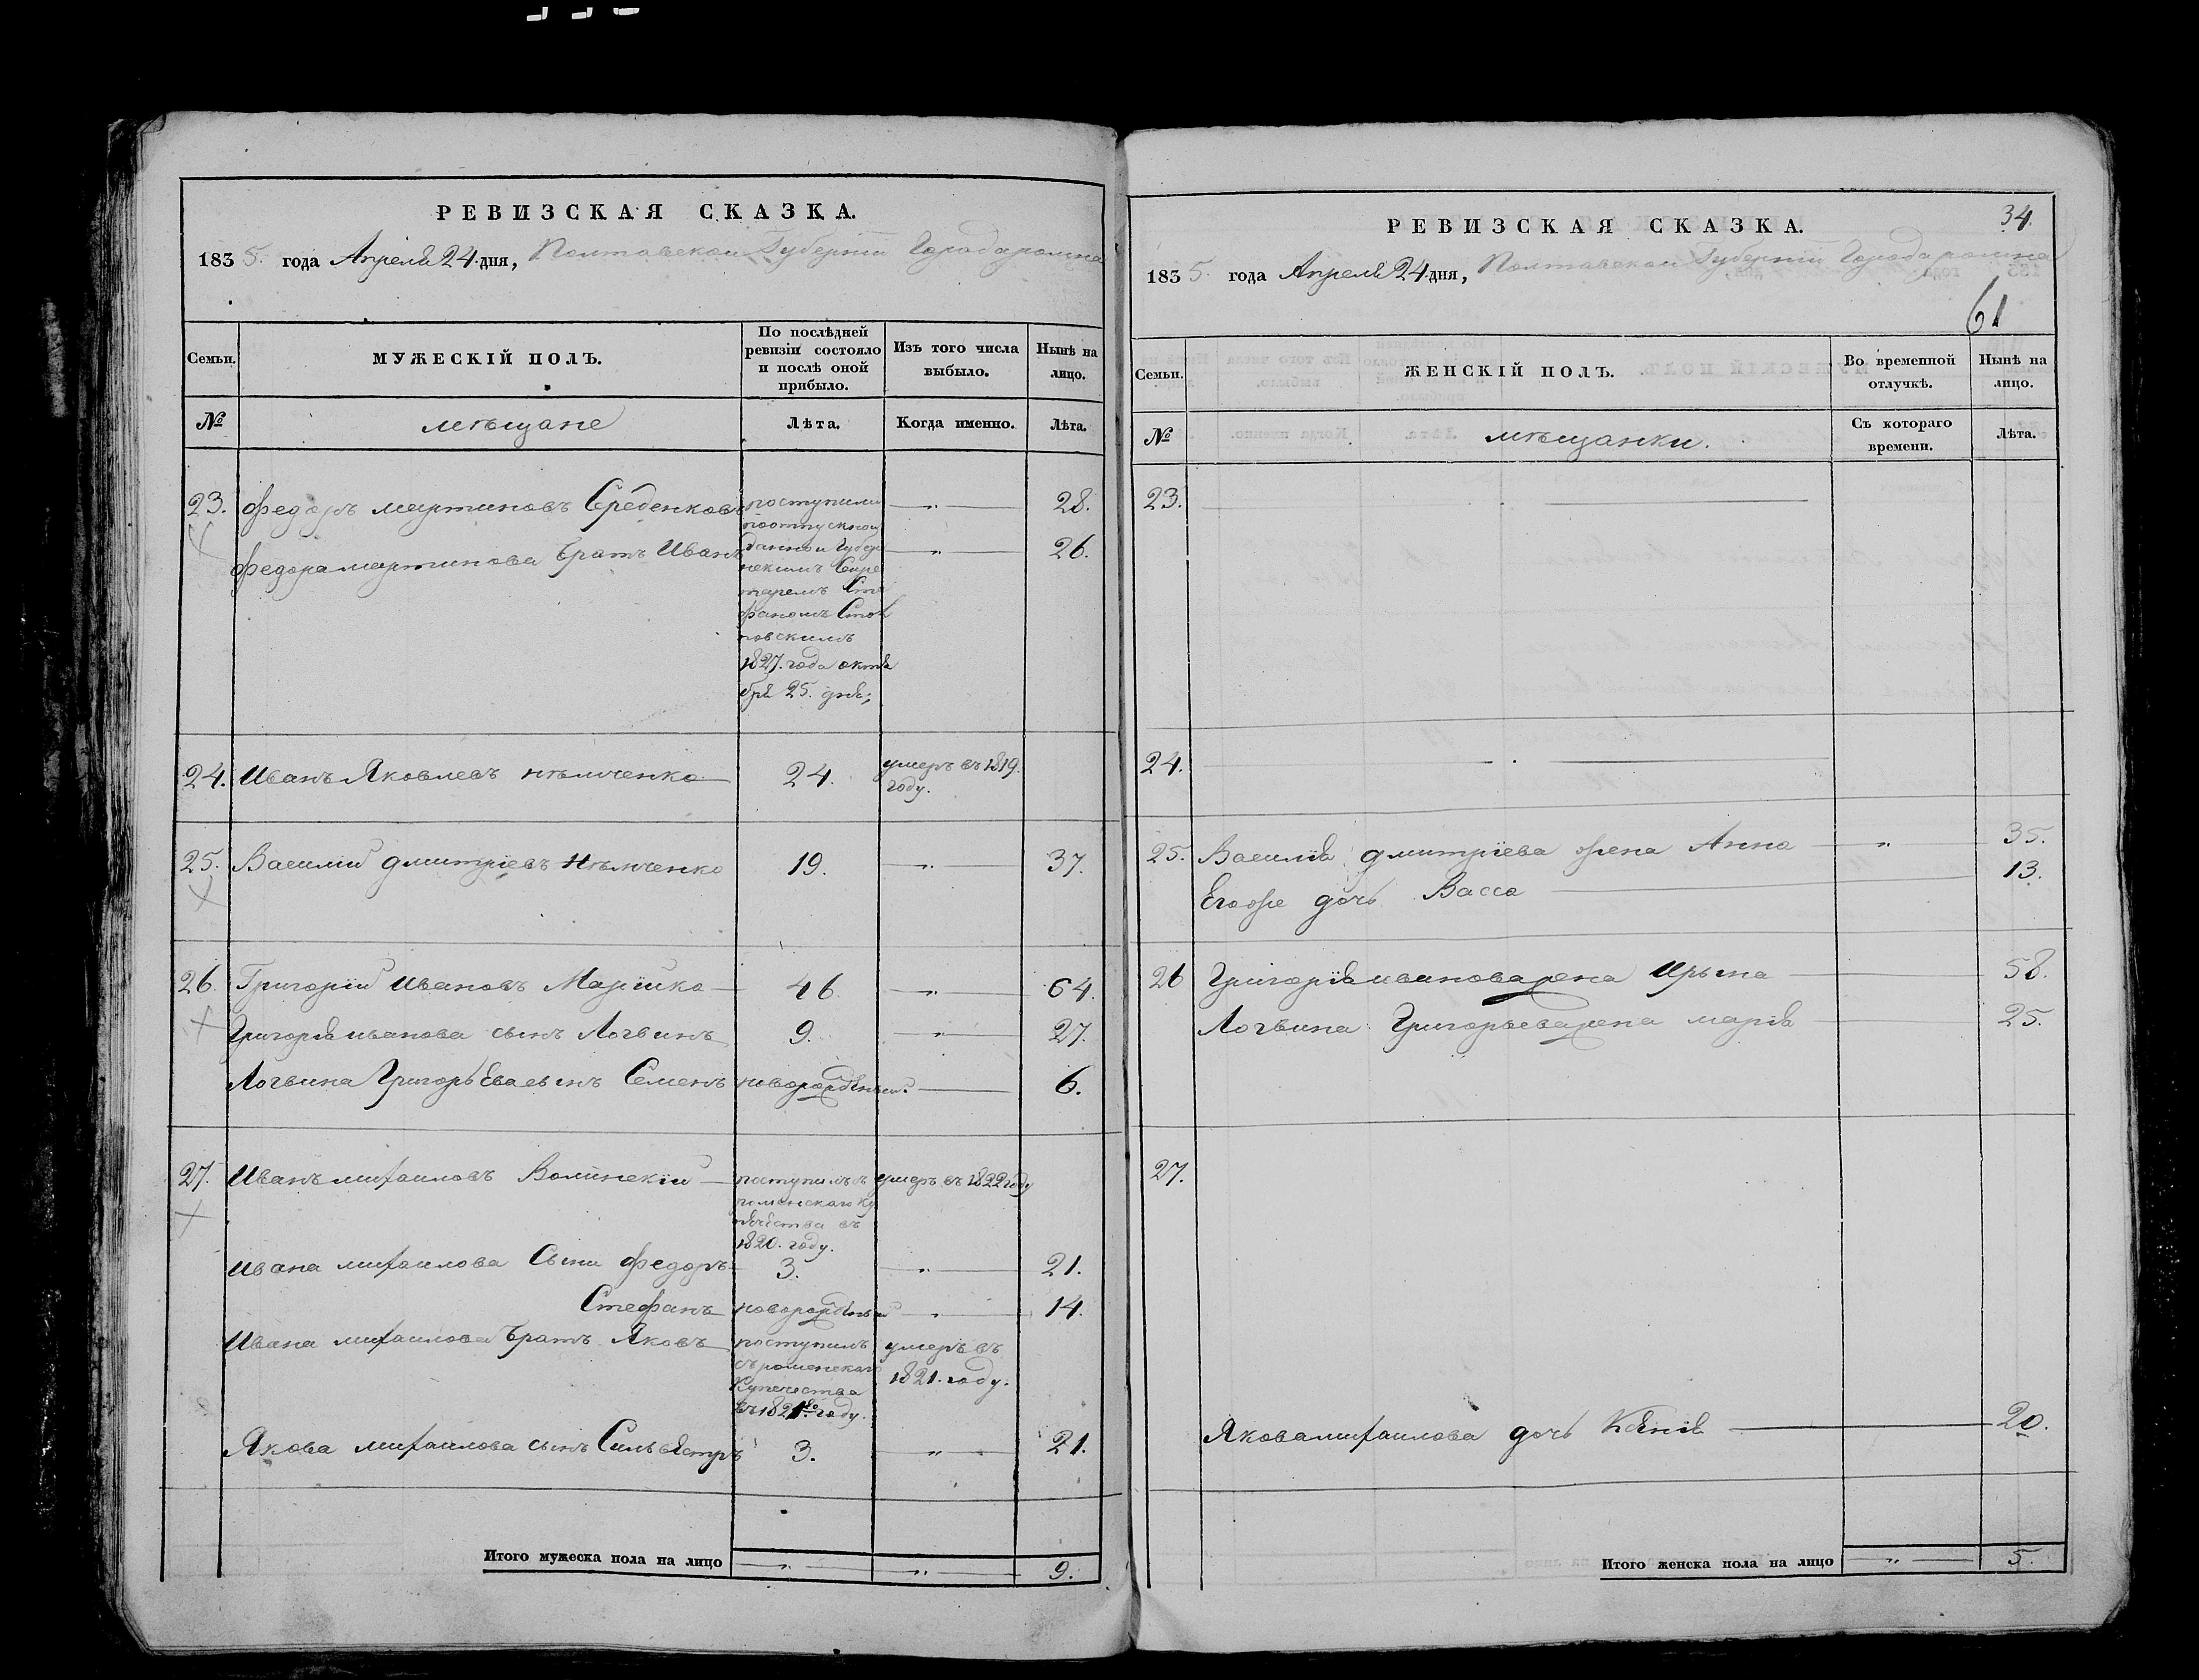 РЕВИЗСКАЯ СКАЗКА.
1835. года Апреля 24. дня, Полтавской Губернии Города ромна
Семьи.
МУЖЕСКІЙ ПОЛЪ.
По послѣдней ревизіи состояло и послѣ оной прибыло.
Изъ того числа выбыло.
Нынѣ на лицо.
№
мѣщане
Лѣта.
Когда именно.
Лѣта.
23. Федоръ мартиновъ Середенковъ
поступили
поотпускной
данной Губер
нскимъ Секре
таремъ Сте
фаномъ
1827. года октя
бря 25. дня;
28.
Федора мартинова братъ Иванъ 26.
24. Иванъ Яковлевъ нѣмченко 24. умеръ въ 1819.
году.
25. Василий дмитріевъ Нѣмченко 19. 37.
26. Григорій Ивановъ Марійко 46 64.
Григорія иванова сынъ Логвинъ 9. 27.
Логвина Григорьева сынъ Семенъ новорожденный. 6.
27. Иванъ михаиловъ Волинскій
поступилъ съ
роменскаго ку
печества въ
1820. году.
умеръ въ 1822 году
Ивана михаилова Сыни Федоръ 3. 21.
Стефанъ новорожденный 14.
Ивана михаилова братъ Яковъ
поступилъ
съ роменскаго
Купечества
умеръ въ
1821. году.
Якова михаилова сынъ Сильвестръ 3. 21.
Итого мужеска пола на лицо 9.
34.
РЕВИЗСКАЯ СКАЗКА.
1835. года Апреля 24. дня, Полтавской Губерніи Города ромна
61
Семьи.
ЖЕНСКІЙ ПОЛЪ.
Во временной отлучкѣ.
Нынѣ на лицо.
№
мѣщанки.
Съ котораго времени.
Лѣта.
23.
24.
25. Василія дмитріева жена Анна 35.
Егоже дочь Васса 13.
26 Григорія иванова жена Ирына 58.
Логвина Григорьева жена марія 25.
27.
Якова михаилова дочь Ксенія 20.
Итого женска пола на лицо 5.